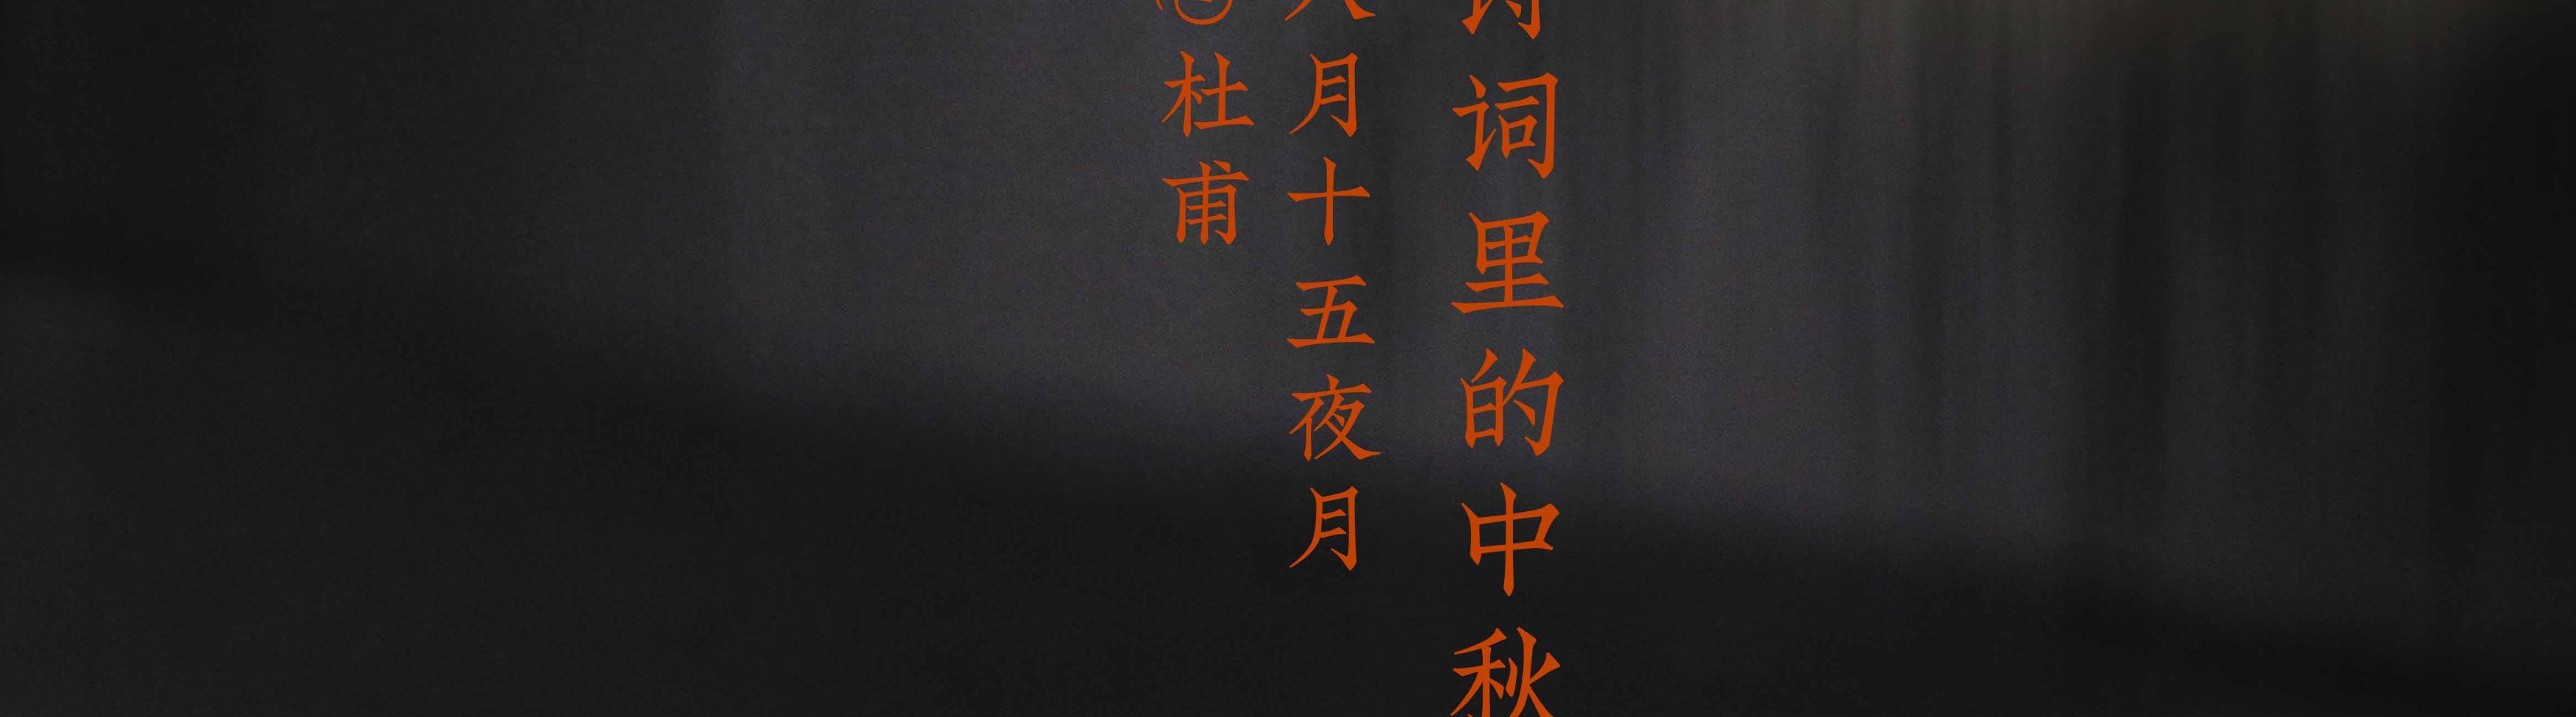 诗词里的中秋
八月十五夜月
杜甫